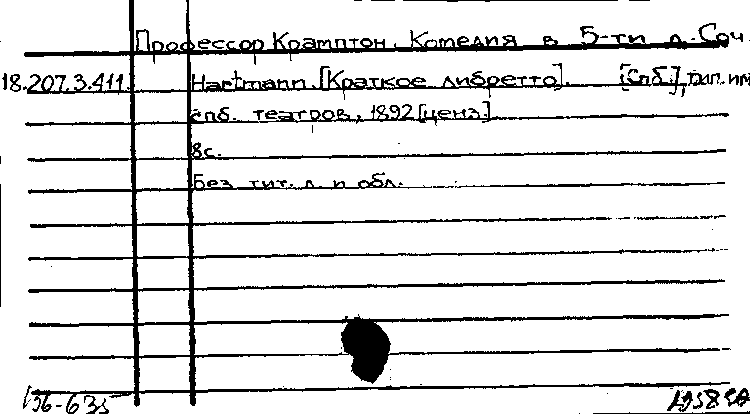 Профессор Крамптон. Комедия в 5-ти д. Соч.
18.207.3.411. Hartmann. [Краткое либретто]. [Спб.], тип. им
спб. театров, 1892 [ценз.]
8с.
Без тит. л. и обл.